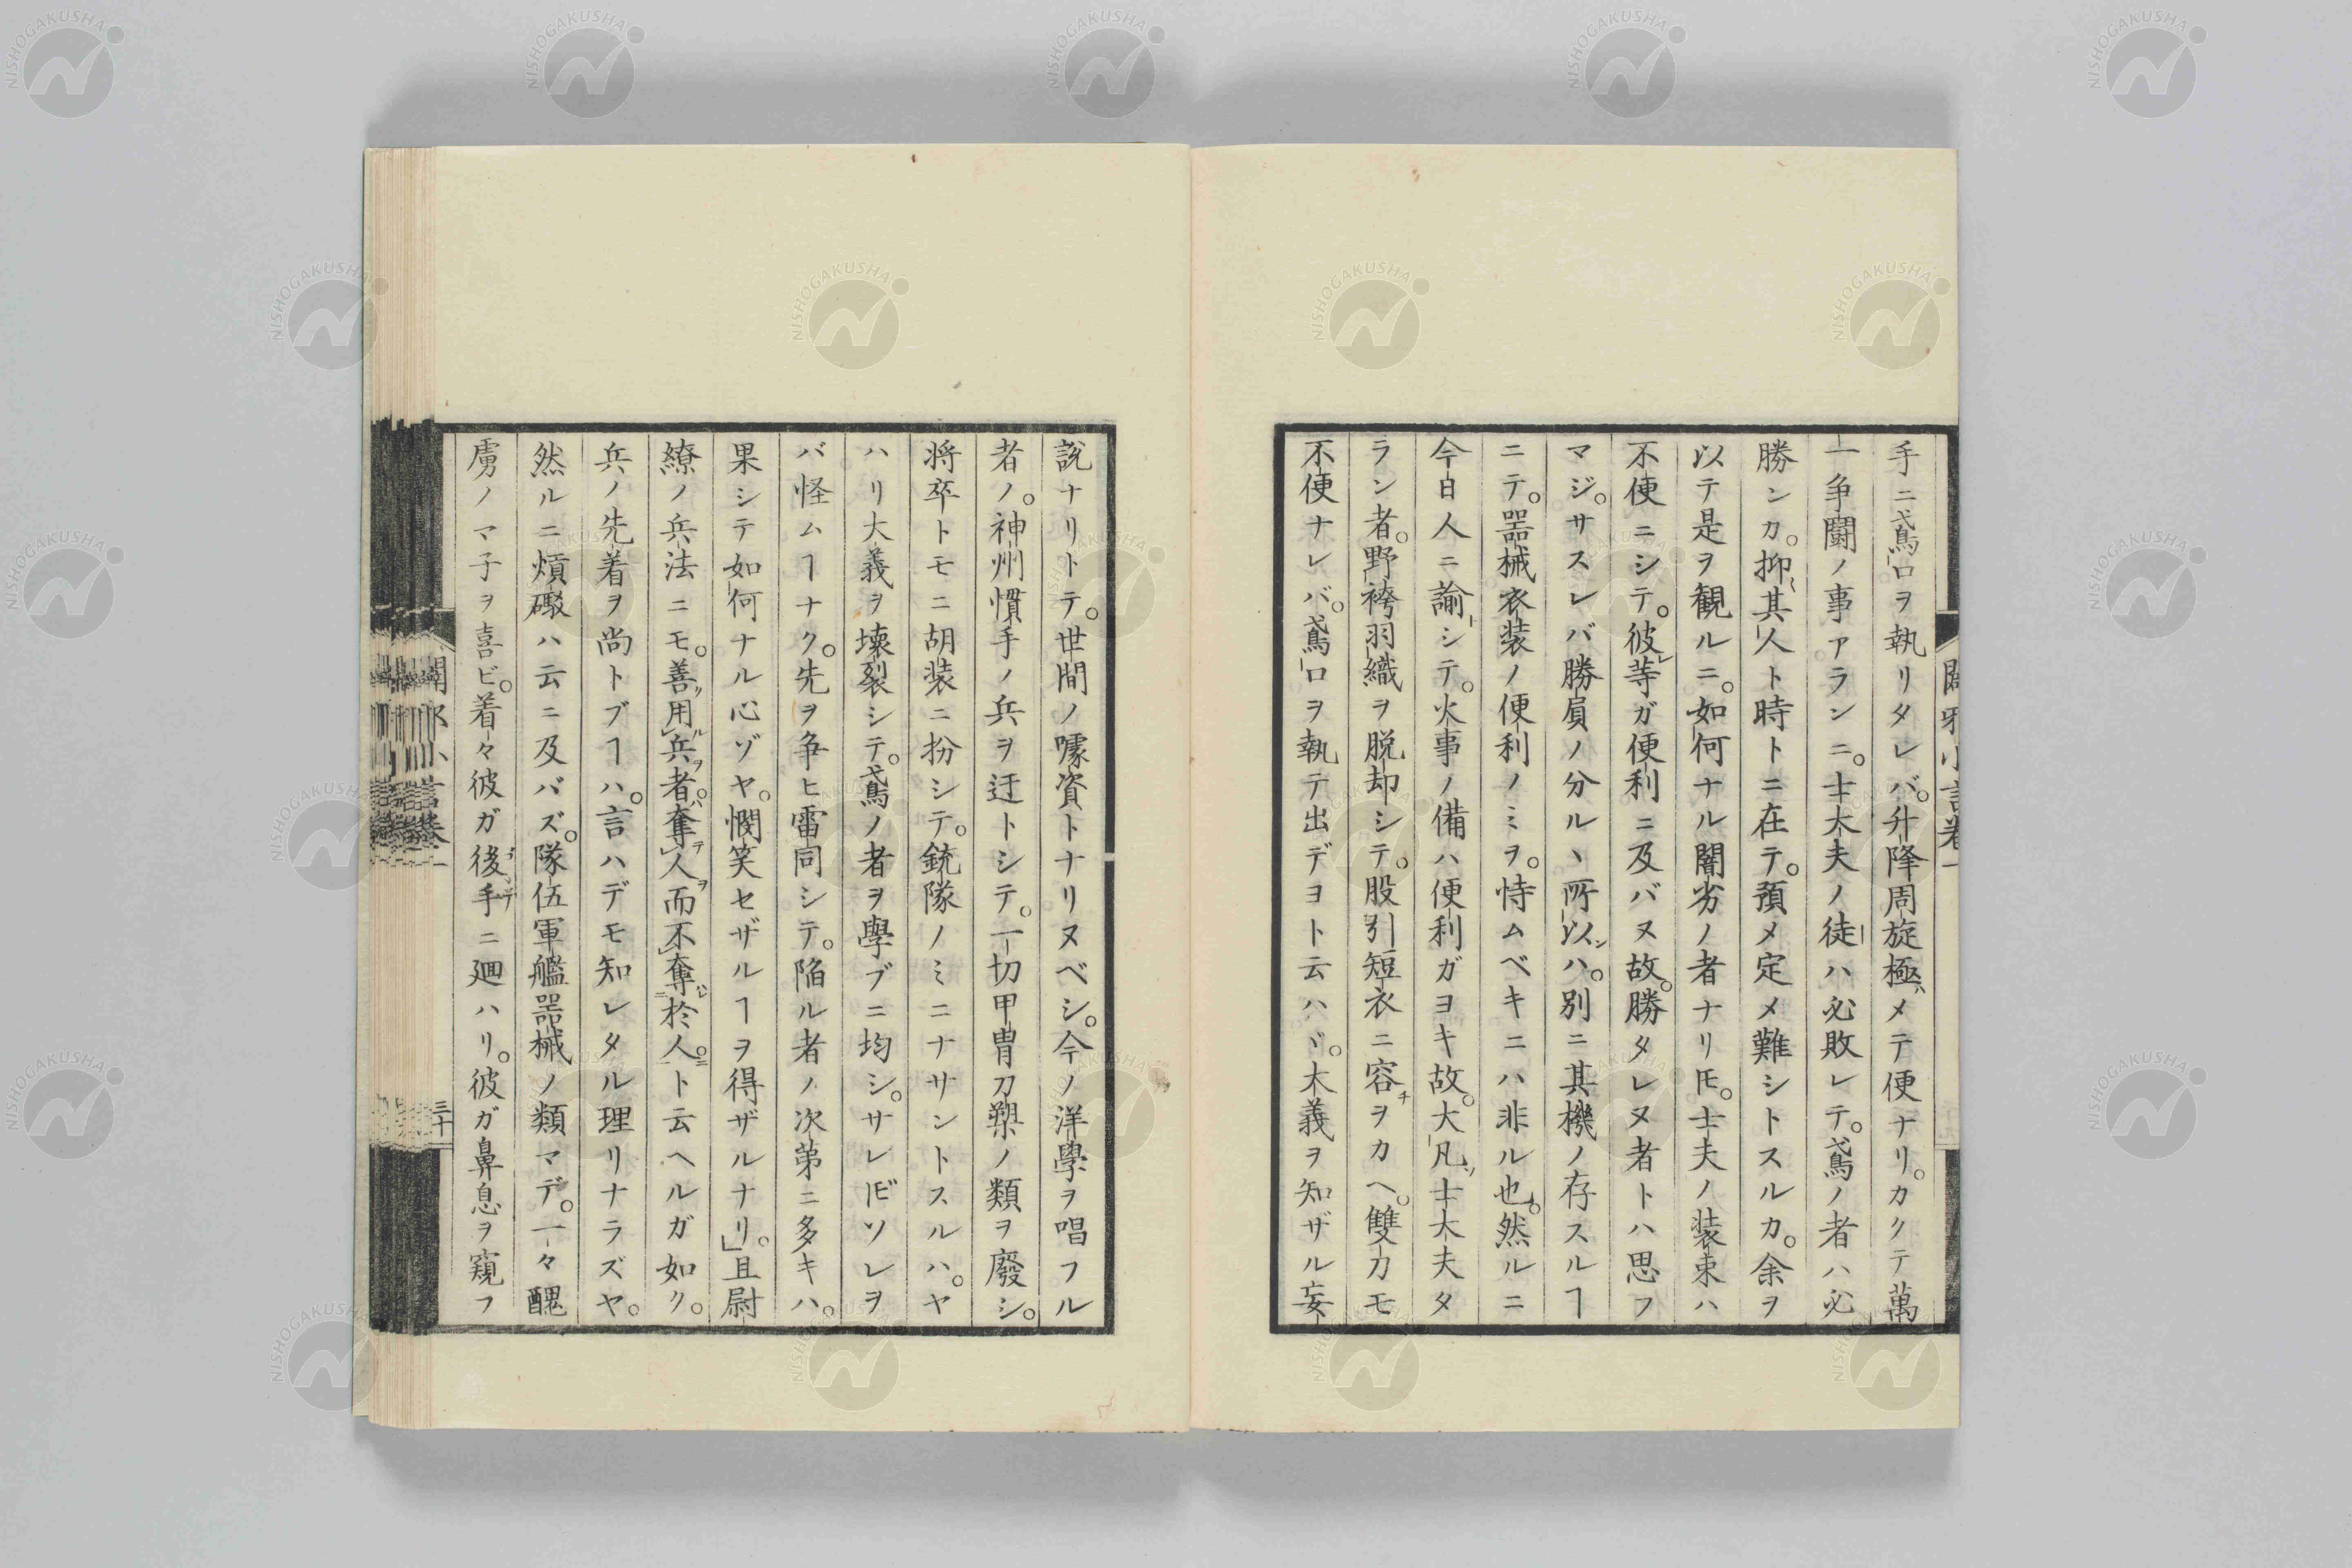 手ニ鳶口ヲ執リタレバ。升降周旋極メテ便ナリ。カクテ萬
一争闘ノ事アランニ。士大夫ノ徒ハ必敗レテ。鳶ノ者ハ必
勝ンカ。抑其人ト時トニ在テ。預メ定メ難シトスルカ。余ヲ
以テ是ヲ観ルニ。如何ナル闇劣ノ者ナリ𪜈。士夫ノ装束ハ
不便ニシテ。彼等ガ便利ニ及バヌ故。勝タレヌ者トハ思フ
マジ。サスレバ勝負ノ分ルヽ所以ハ。別ニ其機ノ存スルヿ
ニテ。器械衣装ノ便利ノミヲ。恃ムベキニハ非ル也。然ルニ
今日人ニ諭シテ。火事ノ備ハ便利ガヨキ故。大凡士大夫タ
ラン者。野袴羽織ヲ脱却シテ。股引短衣ニ容ヲカヘ。雙刀モ
不便ナレバ。鳶口ヲ執テ出デヨト云ハヾ。大義ヲ知ザル妄
闢邪小言巻一
説ナリトテ。世間ノ噱資トナリヌベシ。今ノ洋學ヲ唱フル
者ノ。神州慣手ノ兵ヲ迂トシテ。一切甲冑刀槊ノ類ヲ廢シ。
将卒トモニ胡装ニ扮シテ。銃隊ノミニナサントスルハ。ヤ
ハリ大義ヲ壊裂シテ。鳶ノ者ヲ學ブニ均シ。サレ𪜈ソレヲ
バ怪ムヿナク。先ヲ争ヒ雷同シテ。陥ル者ノ次第ニ多キハ。
果シテ如何ナル心ゾヤ。憫笑セザルヿヲ得ザルナリ」。且尉
繚ノ兵法ニモ。善用兵者。奪人而不奪於人。ト云ヘルガ如ク。
兵ノ先着ヲ尚トブヿハ。言ハデモ知レタル理リナラズヤ。
然ルニ熕礮ハ云ニ及バズ。隊伍軍艦器械ノ類マデ。一々醜
虜ノマ子ヲ喜ビ。着々彼ガ後手ニ廻ハリ。彼ガ鼻息ヲ窺フ
闢邪小言巻一
三十
NISHOGAKUSHA